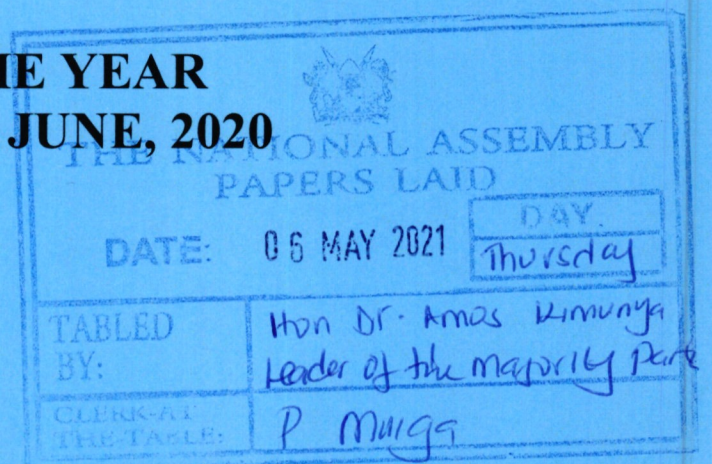 IE YEAR
JUNE, 2020
THE NATIONAL ASSEMBLY
PAPERS LAID
DATE: 06 MAY 2021
DAY.
Thursday
TABLED BY:
Hon Dr. Amos Kimunya
Leader of the Majority Party
CLERK-AT THE-TABLE:
P